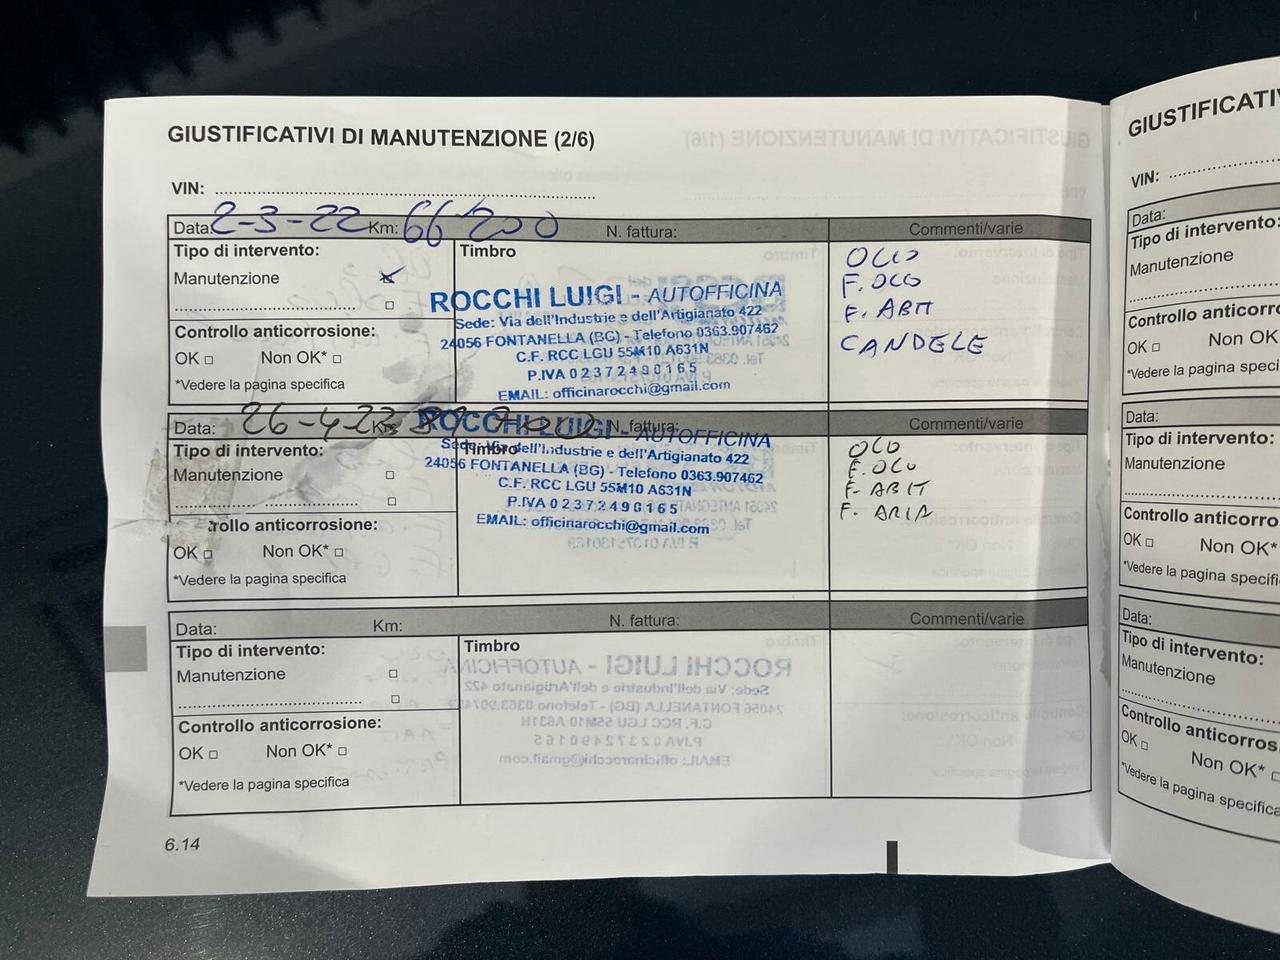 GIUSTIFICATIVI DI MANUTENZIONE (2/6)
VIN:
Data: 2-3-22 Km: 66'200 N. fattura: Commenti/varie
Tipo di intervento:
Manutenzione
Controllo anticorrosione:
OK □ Non OK* □
*Vedere la pagina specifica
Timbro
ROCCHI LUIGI - AUTOFFICINA
Sede: Via dell'Industrie e dell'Artigianato 422
24056 FONTANELLA (BG) - Telefono 0363.907462
C.F. RCC LGU 55M10 A631N
P.IVA 02372490165
EMAIL: officinarocchi@gmail.com
OLIO
F. OLIO
F. ABIT
CANDELE
Data: 26-4-23 Km: N. fattura:
Tipo di intervento:
Manutenzione □
□
trollo anticorrosione:
OK □ Non OK* □
*Vedere la pagina specifica
Timbro
ROCCHI LUIGI - AUTOFFICINA
Sede: Via dell'Industrie e dell'Artigianato 422
24056 FONTANELLA (BG) - Telefono 0363.907462
C.F. RCC LGU 55M10 A631N
P.IVA 02372490165
EMAIL: officinarocchi@gmail.com
OLIO
F. OLIO
F. ABIT
F. ARIA
Data: Km: N. fattura: Commenti/varie
Tipo di intervento:
Manutenzione □
□
Controllo anticorrosione:
OK □ Non OK* □
*Vedere la pagina specifica
Timbro
6.14
GIUSTIFICATI
VIN:
Data:
Tipo di intervento:
Manutenzione
Controllo anticorro
OK □ Non OK
*Vedere la pagina speci
Data:
Tipo di intervento:
Manutenzione
Controllo anticorro
OK □ Non OK*
*Vedere la pagina specifi
Data:
Tipo di intervento:
Manutenzione
Controllo anticorros
OK □ Non OK* □
*Vedere la pagina specifica